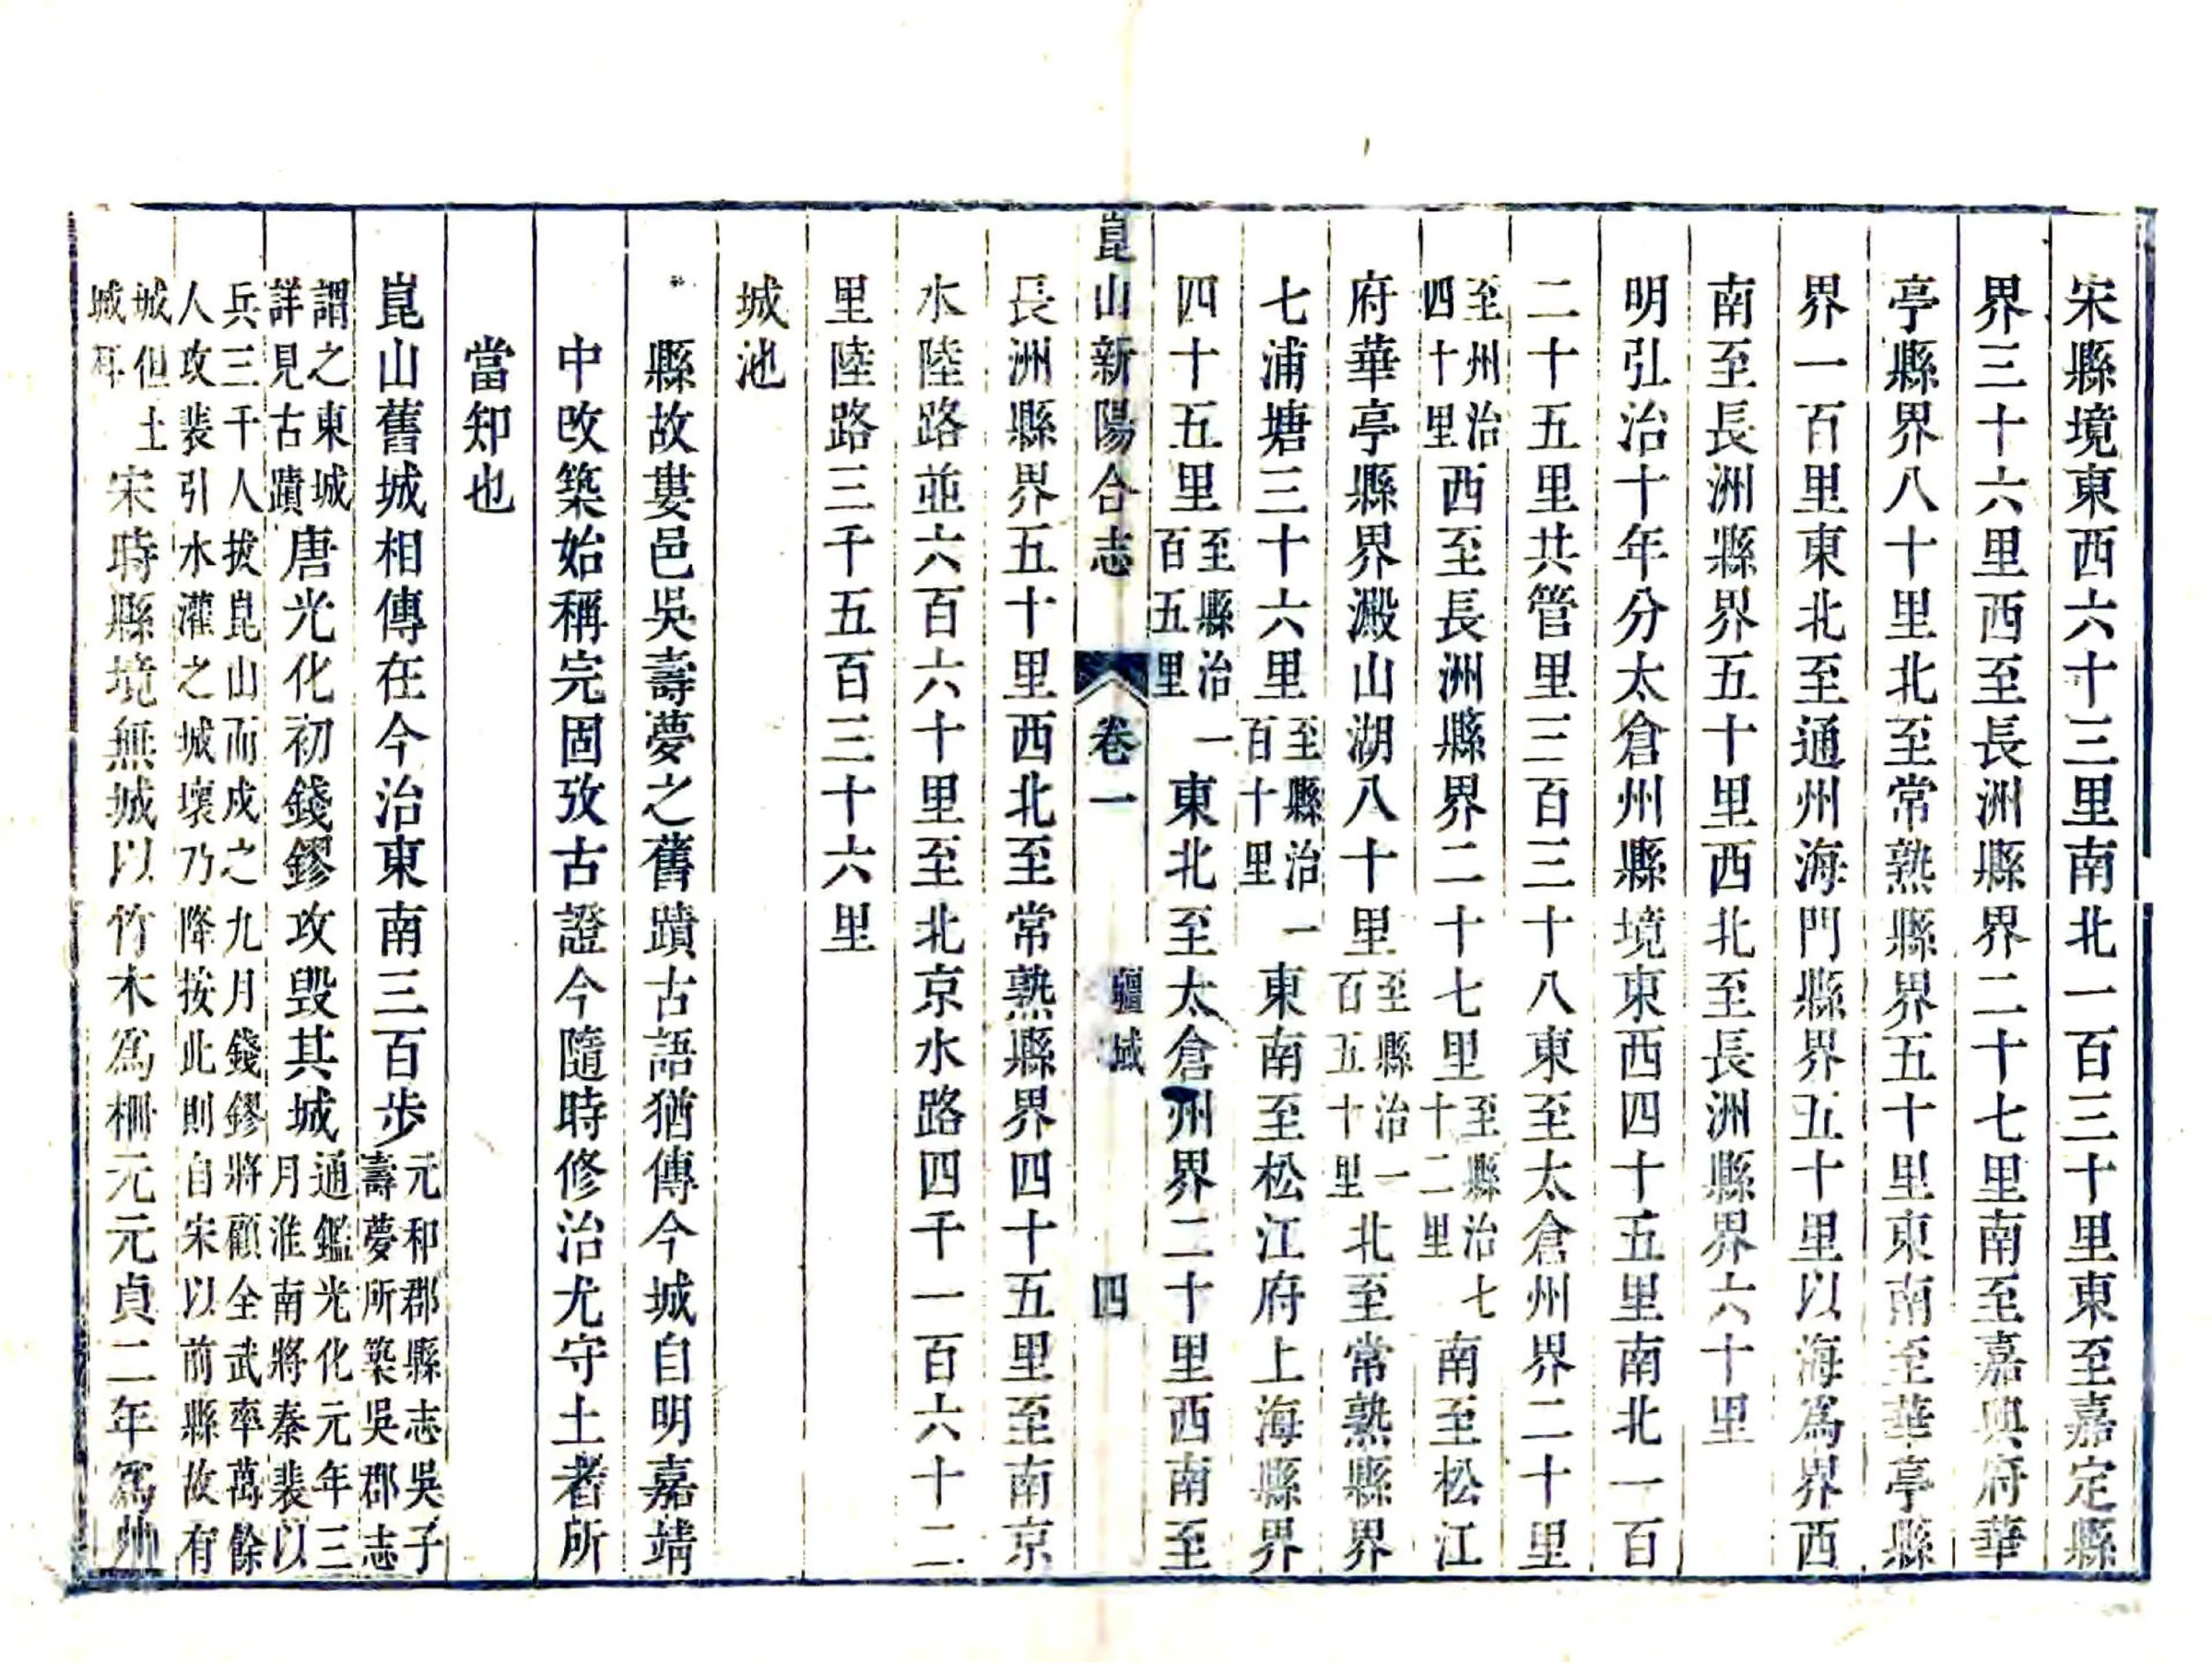 宋縣境東西六十三里南北一百三十里東至嘉定縣
界三十六里西至長洲縣界二十七里南至嘉興府華
亭縣界八十里北至常熟縣界五十里東南至華亭縣
界一百里東北至通州海門縣界五十里以海爲界西
南至長洲縣界五十里西北至長洲縣界六十里
明弘治十年分太倉州縣境東西四十五里南北一百
二十五里共管里三百三十八東至太倉州界二十里
至州治四十里西至長洲縣界二十七里至縣治七十二里南至松江
府華亭縣界澱山湖八十里至縣治一百五十里北至常熟縣界
七浦塘三十六里至縣治一百十里東南至松江府上海縣界
四十五里至縣治一百五里東北至太倉州界二十里西南至
崑山新陽合志 卷一 疆域 四
長洲縣界五十里西北至常熟縣界四十五里至南京
水陸路並六百六十里至北京水路四千一百六十二
里陸路三千五百三十六里
城池
縣故婁邑吳壽夢之舊蹟古語猶傳今城自明嘉靖
中改築始稱完固攷古證今隨時修治尤守土者所
當知也
崑山舊城相傳在今治東南三百步元和郡縣志吳子壽夢所築吳郡志
謂之東城詳見古蹟唐光化初錢鏐攻毀其城通鑑光化元年三月淮南將秦裴以
兵三千人拔崑山而戍之九月錢鏐將顧全武率萬餘人攻裴引水灌之城壞乃降按此則自宋以前縣故有
城但土城耳宋時縣境無城以竹木爲柵元元貞二年爲州